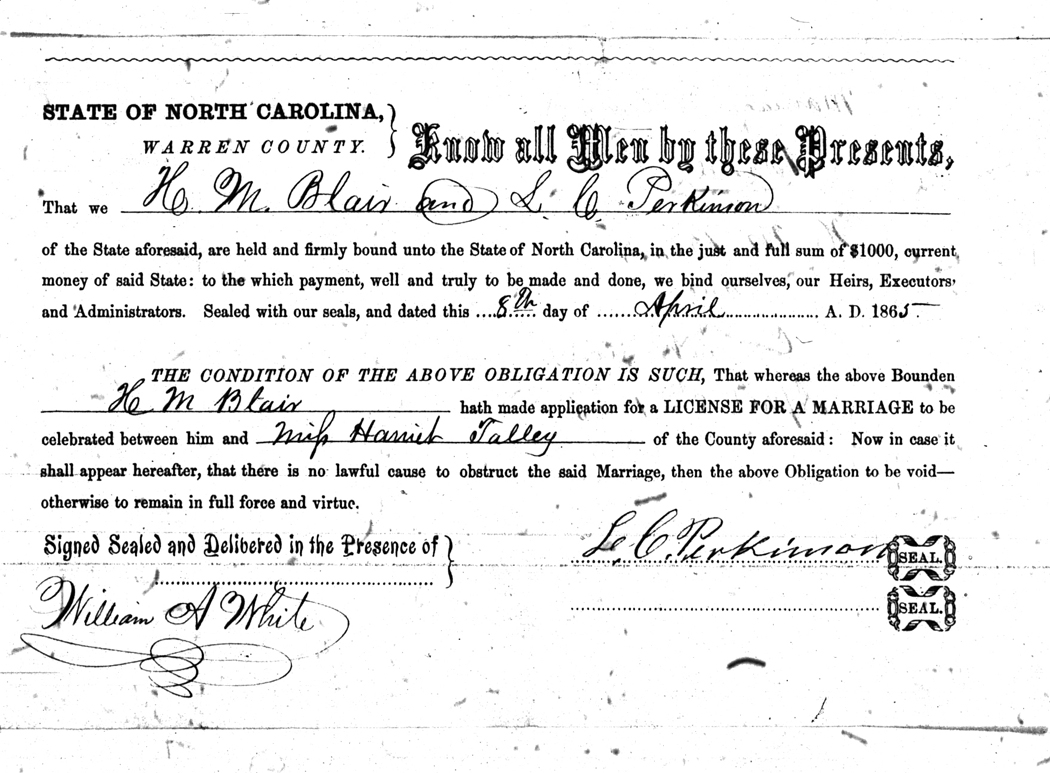 STATE OF NORTH CAROLINA,
WARREN COUNTY.
Know all Men by these Presents,
That we H. M. Blair and L. C. Perkinson
of the State aforesaid, are held and firmly bound unto the State of North Carolina, in the just and full sum of $1000, current
money of said State: to the which payment, well and truly to be made and done, we bind ourselves, our Heirs, Executors
and Administrators. Sealed with our seals, and dated this ....8th.... day of .......April................... A. D. 1865.
THE CONDITION OF THE ABOVE OBLIGATION IS SUCH, That whereas the above Bounden
H M Blair hath made application for a LICENSE FOR A MARRIAGE to be
celebrated between him and Miss Harriet Talley of the County aforesaid: Now in case it
shall appear hereafter, that there is no lawful cause to obstruct the said Marriage, then the above Obligation to be void—
otherwise to remain in full force and virtue.
Signed Sealed and Delibered in the Presence of
L. C. Perkinson SEAL.
William A White
SEAL.